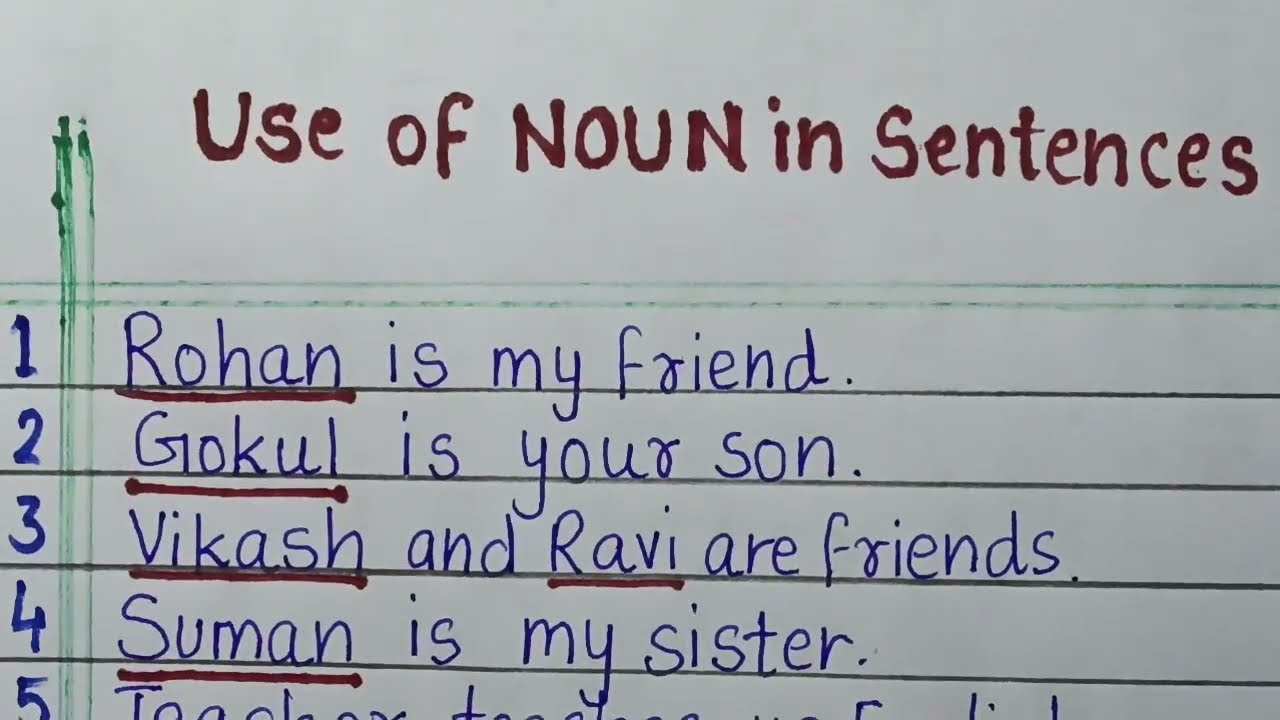 Use of NOUN in Sentences
1 Rohan is my friend.
2 Gokul is your son.
3 Vikash and Ravi are friends.
4 Suman is my sister.
5 Teacher teaches us English